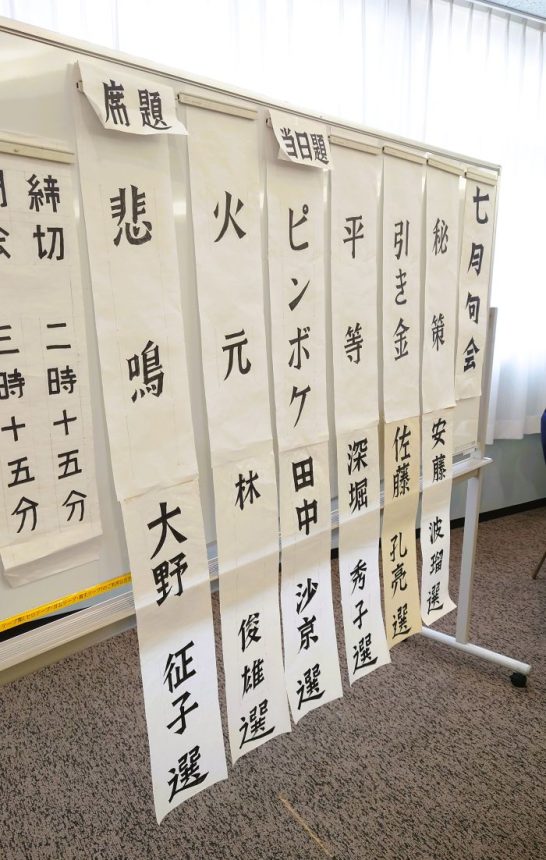 七月句会
秘策 安藤 波瑠選
引き金 佐藤 孔亮選
平等 深堀 秀子選
当日題
ピンボケ 田中 沙京選
火元 林 俊雄選
席題
悲鳴 大野 征子選
締切 二時十五分
会 三時十五分